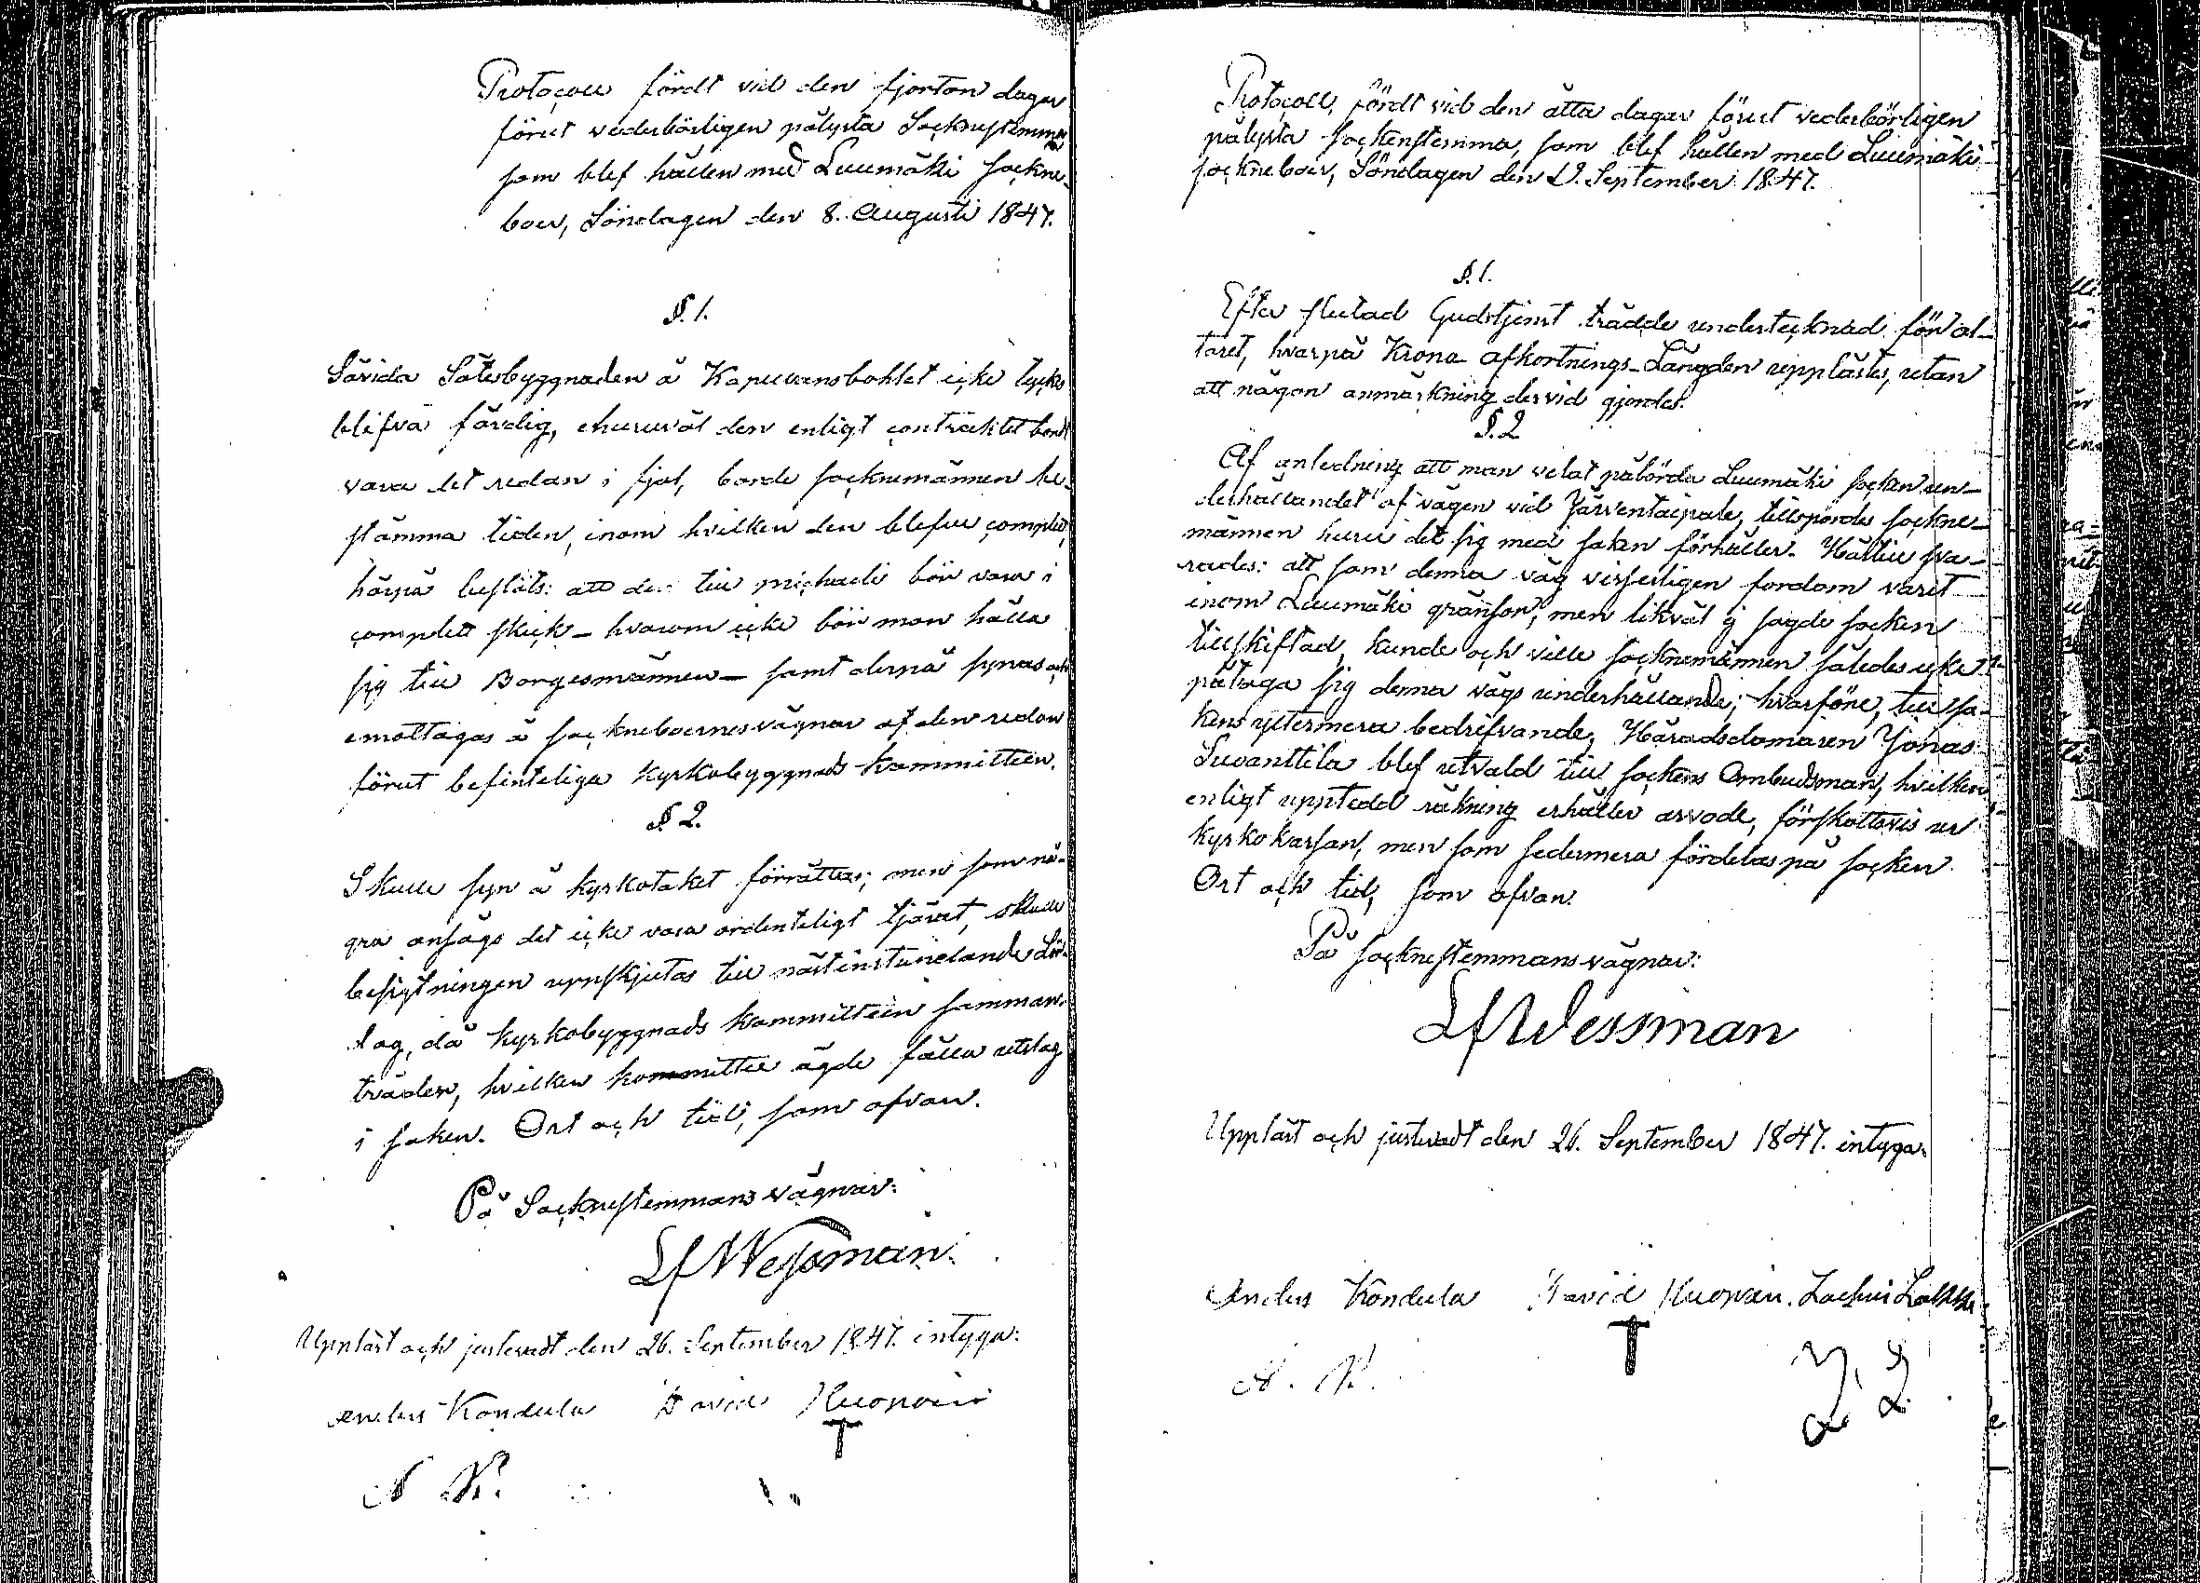 Protocoll fördt vid den fjorton dagar
förut vederbörligen pålysta Socknestemma
som blef hållen med Luumäki Sockne-
boer, Söndagen den 8. Augusti 1847.
§. 1.
Såvida Sätesbyggnaden å Kapellansbohlet icke tycks
blifva färdig, ehuruväl den enligt contraktet bordt
vara det redan i fjol, borde socknemännen be-
stämma tiden, inom hvilken den blefve complet,
härpå beslöts: att den till michaeli bör vara i
complett skick - hvarom icke bör man hålla
sig till Borgesmännen - samt derpå synas och
emottagas å sockneboernes vägnar af den redan
förut befinteliga kyrkobyggnads kommitteen.
§ 2.
Skulle syn å kyrkotaket förrättas; men som nå-
gra ansågo det icke vara ordenteligt tjärat, skulle
besigtningen uppskjutas till nästinstundande Lör-
dag, då kyrkobyggnads kommitteen samman-
träder, hvilken kommittee ägde fälla utslag
i saken. Ort och tid, som ofvan.
På Socknestemmans vägnar:
LfWessman.
Uppläst och justeradt den 26. September 1847. intyga:
Anders Kondula David Huopain
A K.
Protocoll, fördt vid den åtta dagar förut vederbörligen
pålysta sockenstemma, som blef hållen med Luumäki
sockneboer, Söndagen den 12. September 1847.
§. 1.
Efter slutad Gudstjenst trädde undertecknad för al-
taret, hvarpå Krono-Afkortnings-Längden upplästes, utan
att någon anmärkning dervid gjordes.
§. 2
Af anledning att man velat påbörda Luumäki socken un-
derhållandet af vägen vid Järventaipale, tillspordes sockne-
männen huru det sig med saken förhåller. Härtill sva-
rades: att som denna väg visserligen fordom varit
inom Luumäki gränsor, men likväl ej sagde socken
tillskiftad, kunde och ville socknemännen således icke
påtaga sig denna vägs underhållande; hvarföre, till sa-
kens yttermera bedrifvande, Häradsdomaren Jonas
Suvanttila blef utvald till sockens Ombudsman, hvilken
enligt uppstedd räkning erhåller arvode, förskottsvis ur
kyrkokassan, men som sedermera fördelas på socken.
Ort och tid, som ofvan.
På socknestemmans vägnar:
LfWessman
Uppläst och justeradt den 26. September 1847. intyga.
Anders Kondula David Huopain.
A. K.